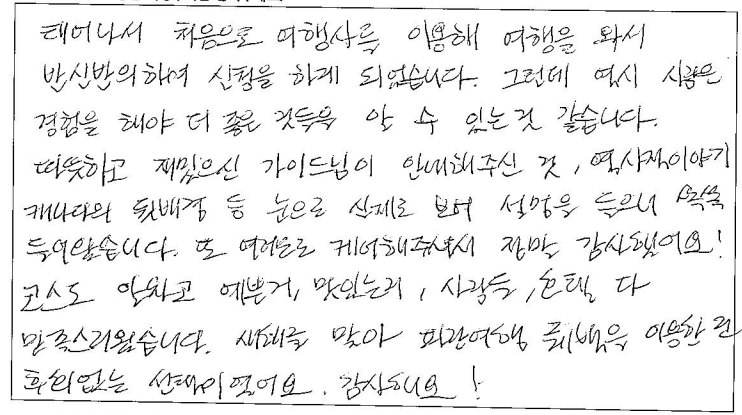 태어나서 처음으로 여행사를 이용해 여행을 와서
반신반의하여 신청을 하게 되었습니다. 그런데 역시 사람은
경험을 해야 더 좋은 것들을 알 수 있는것 같습니다.
따뜻하고 재밌으신 가이드님이 안내해주신 것, 역사적이야기
캐나다의 뒷배경 등 눈으로 실제로 보며 설명을 들으니 쏙쏙
들어왔습니다. 또 여러모로 케어해주셔서 정말 감사했어요!
코스도 알차고 예쁜거, 맛있는거, 사람들, 호텔 다
만족스러웠습니다. 새해를 맞아 파란여행 동백을 이용한 건
후회없는 선택이였어요. 감사해요!